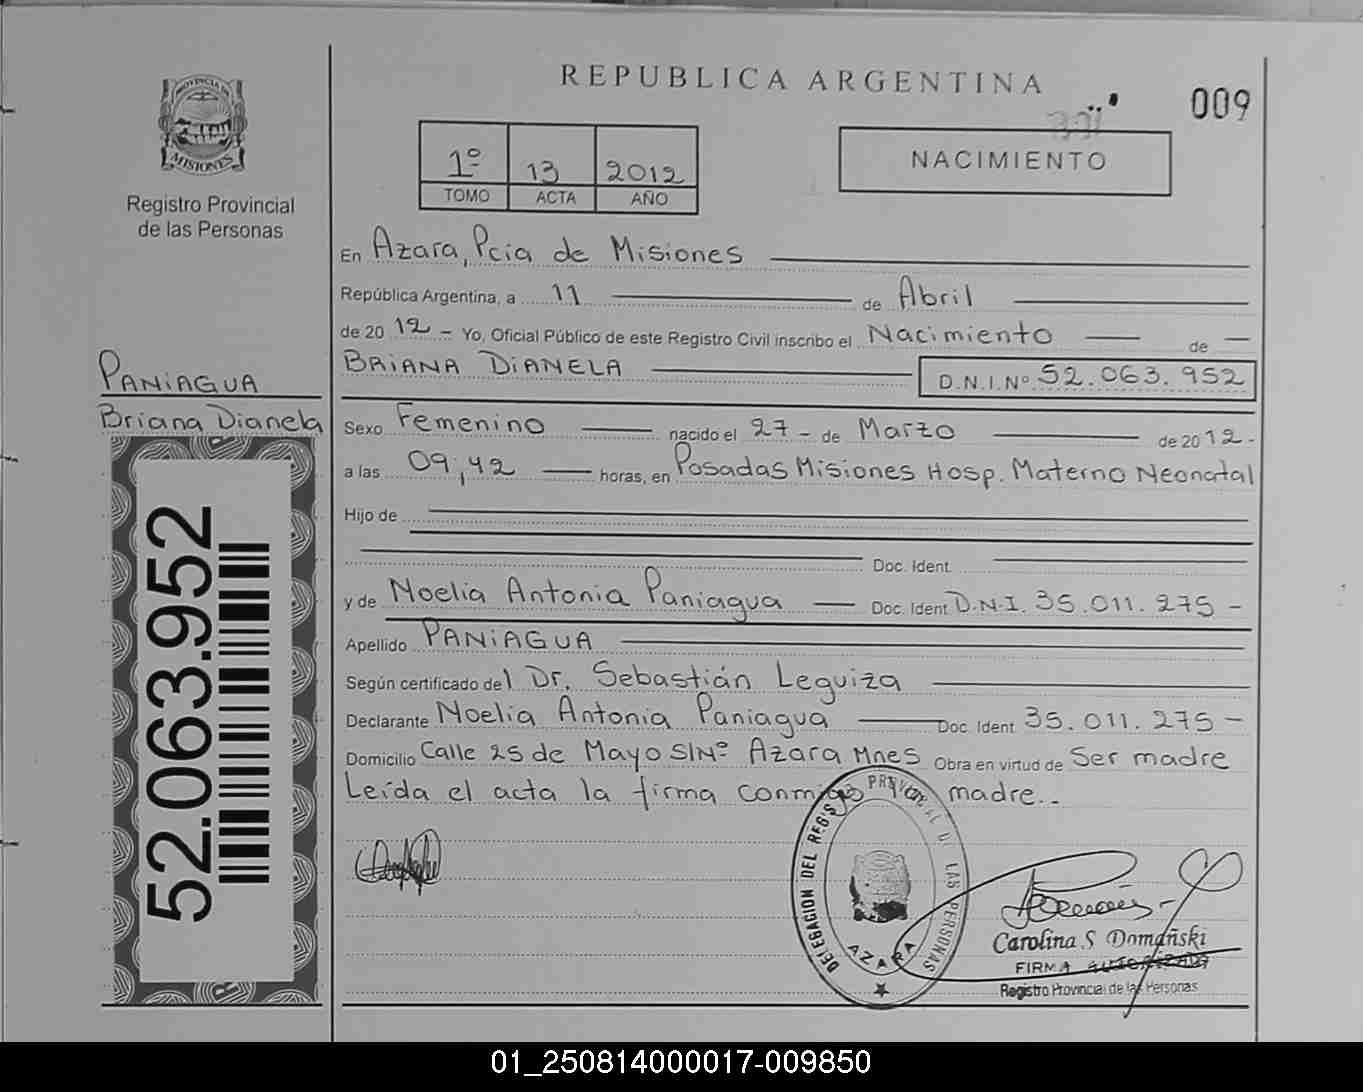 REPUBLICA ARGENTINA
009
PROVINCIA DE
MISIONES
Registro Provincial
de las Personas
1º 13 2012
TOMO ACTA AÑO
NACIMIENTO
En Azara, Pcia de Misiones
República Argentina, a 11 de Abril
de 20 12 - Yo, Oficial Público de este Registro Civil inscribo el Nacimiento de
BRIANA DIANELA D.N.I.Nº 52.063.952
PANIAGUA
Briana Dianela
52.063.952
Sexo Femenino nacido el 27 - de Marzo de 20 12.-
a las 09,42 horas, en Posadas Misiones Hosp. Materno Neonatal
Hijo de
Doc. Ident.
y de Noelia Antonia Paniagua Doc. Ident. D.N.I. 35.011.275 -
Apellido PANIAGUA
Según certificado del Dr. Sebastián Leguiza
Declarante Noelia Antonia Paniagua Doc. Ident 35.011.275 -
Domicilio Calle 25 de Mayo S/Nº Azara Mnes Obra en virtud de Ser madre
Leída el acta la firma conmigo madre..
DELEGACION DEL REGIS PROVINCIAL DE LAS PERSONAS
AZARA
Carolina S Domañski
FIRMA AUTORIZADA
Registro Provincial de las Personas
01_250814000017-009850